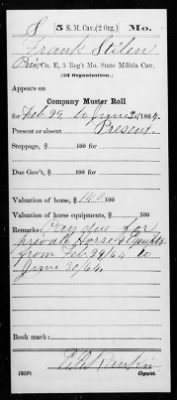 S 5 S. M. Cav. (2 Org.) Mo.
Frank Stilen
Priv, Co. E, 5 Reg't Mo. State Militia Cav.
(2d Organization.)
Appears on
Company Muster Roll
for Feb 29 to June 30, 1864.
Present or absent Present.
Stoppage, $ 100 for
Due Gov't, $ 100 for
Valuation of horse, $ 140 100
Valuation of horse equipments, $ 100
Remarks: Pay due for
private Horse & Equipts
from Feb. 29/64 to
June 30/64.
Book mark:
(358) Copyist.